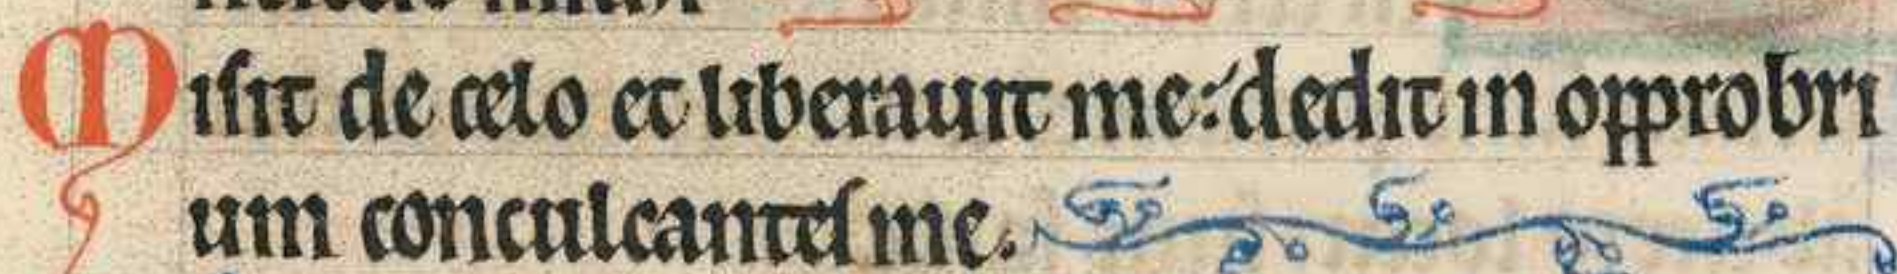 Misit de celo et liberauit me: dedit in opprobri
um conculcantes me.